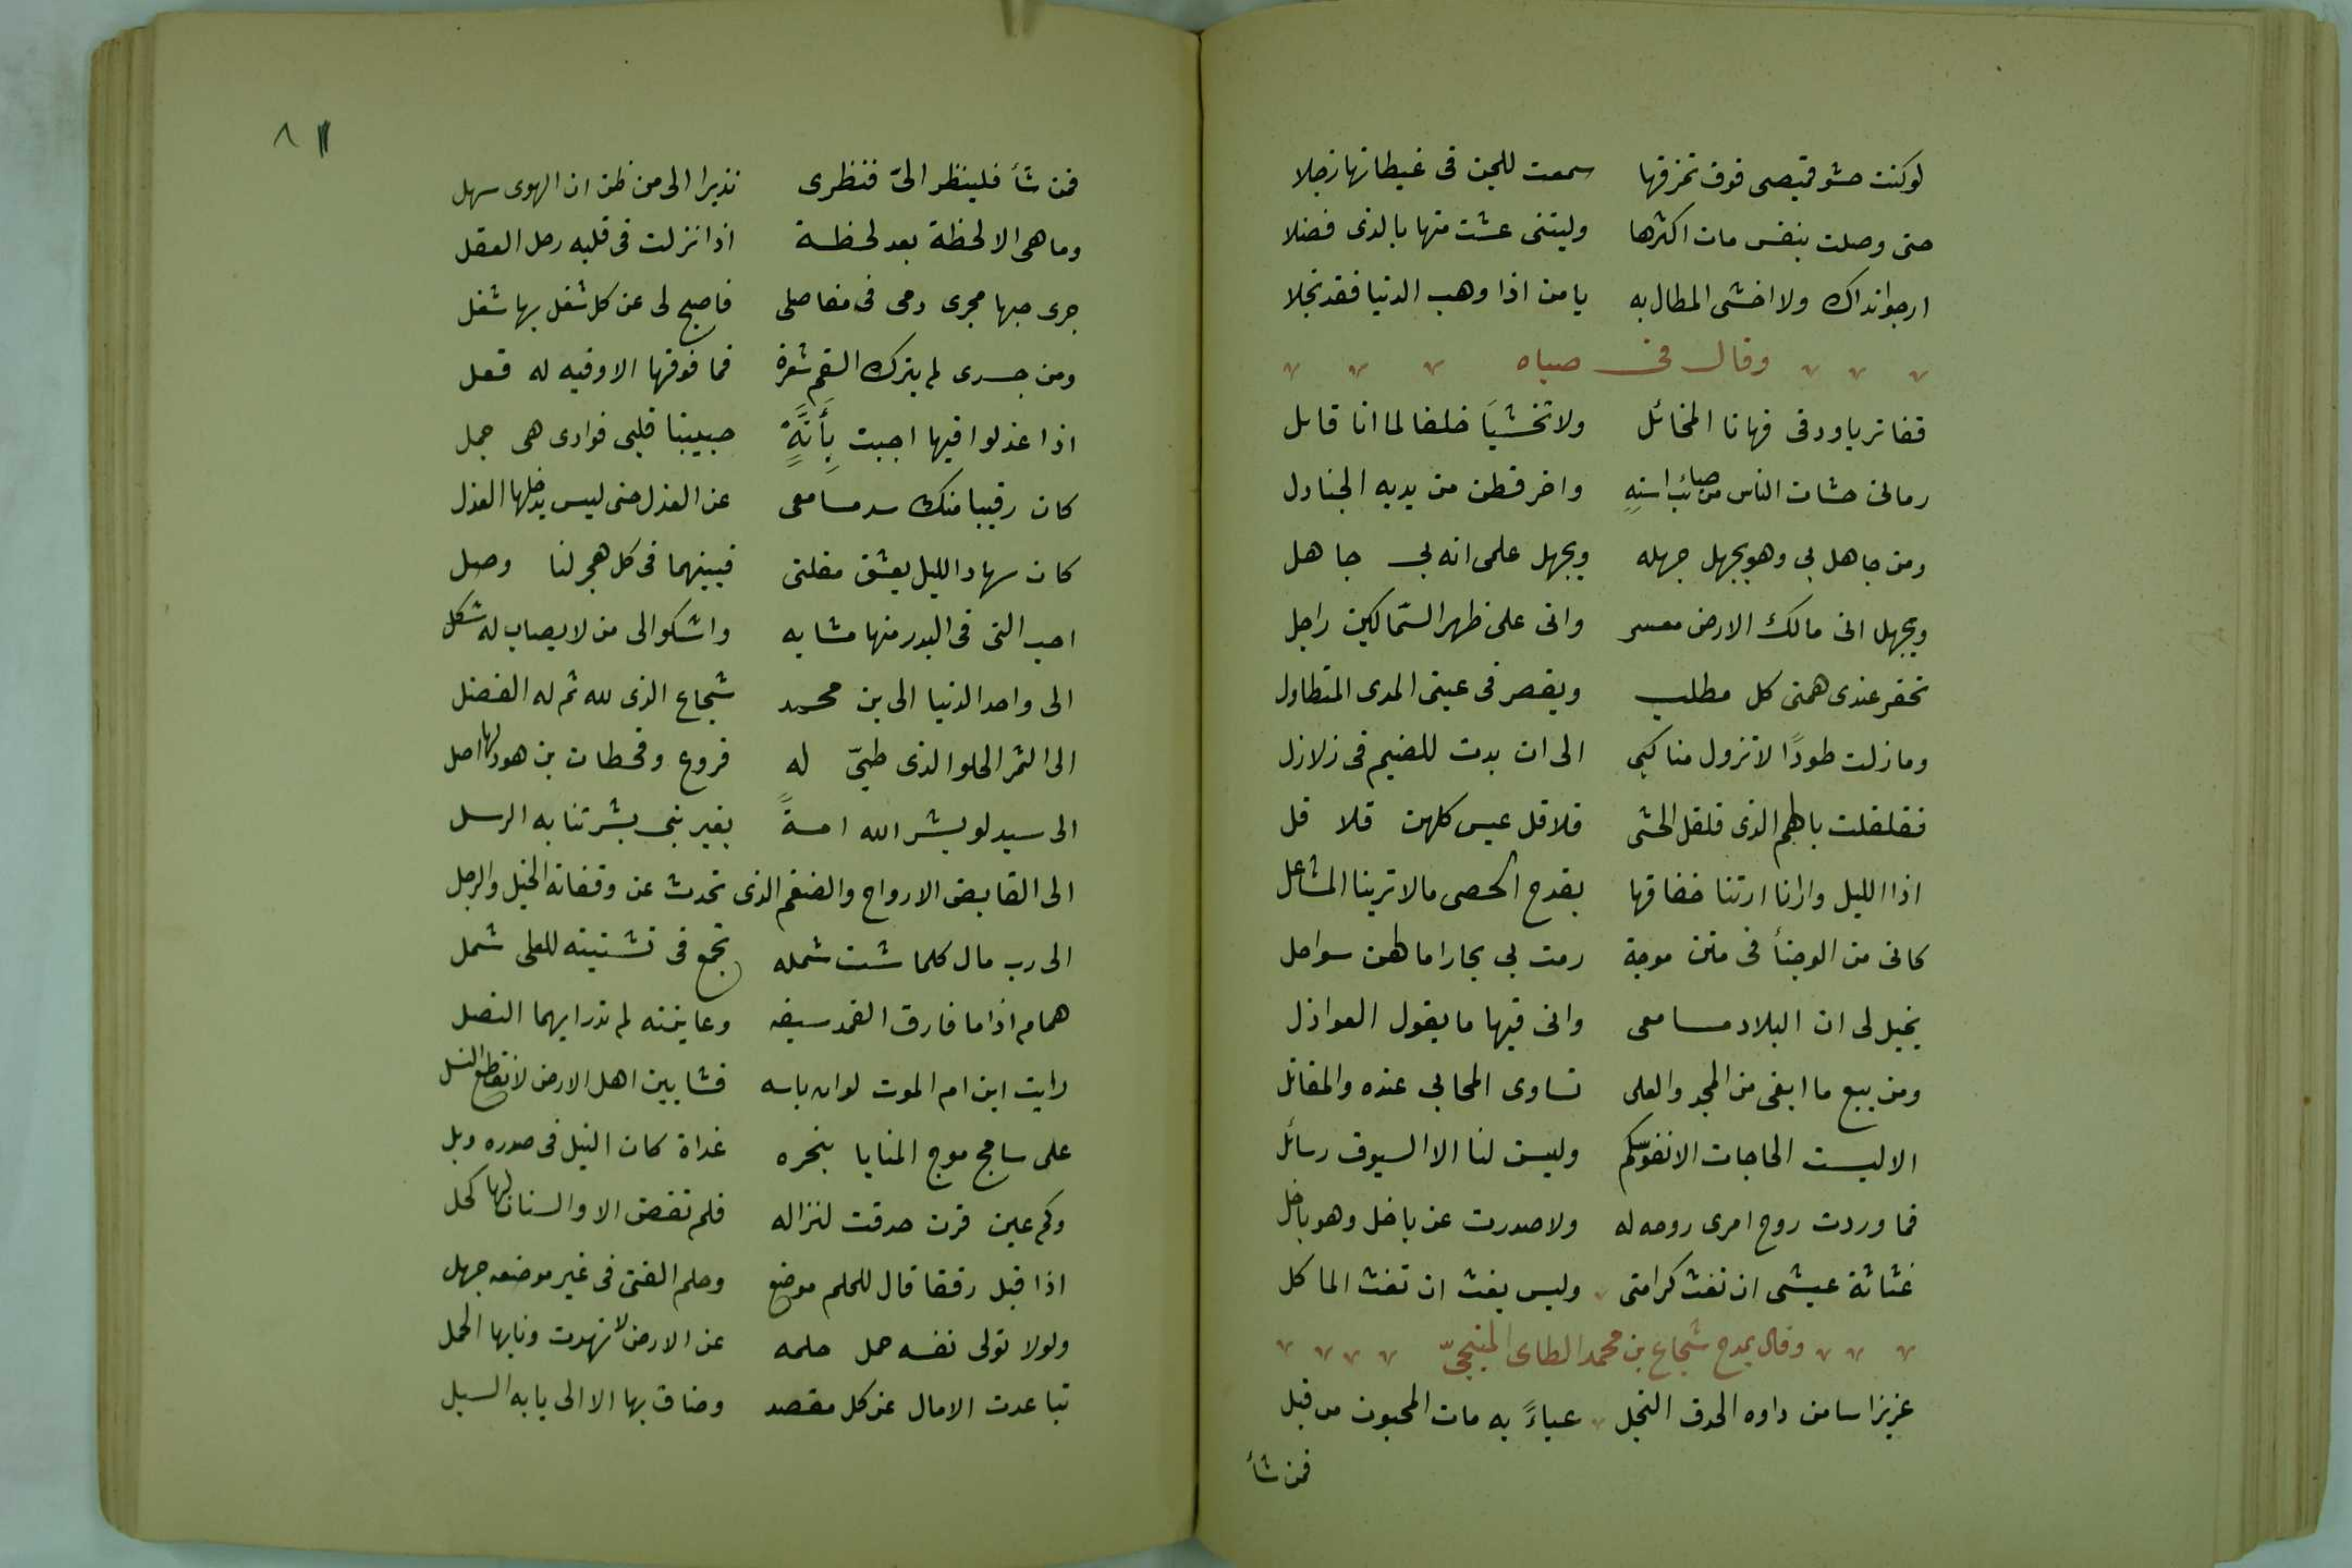 لوكنت حشو قميصى فوق نمرقها سمعت للجن فى غيطانها زجلا
حتى وصلت بنفس مات اكثرها وليتنى عشت منها بالذى فضلا
ارجوانداك ولا اخشى المطال به يا من اذا وهب الدنيا فقد بخلا
وقال فى صباه
قفا تريا ودقى فهاتا المخائل ولا تخشيا خلفا لما انا قايل
رمانى خشات الناس من صائب استه واخر قطن من يديه الجنادل
ومن جاهل بى وهو يجهل جهله ويجهل علمى انه بى جاهل
ويجهل انى مالك الارض معسر وانى على ظهر السماكين راجل
تحقر عندى همتى كل مطلب ويقصر فى عينى المدى المتطاول
وما زلت طودًا لا تزول مناكبى الى ان بدت للضيم فى زلازل
فقلقلت بالهم الذى قلقل الحشى قلاقل عيس كلهن قلا قل
اذا الليل وارانا ارتنا خفافها بقدح الحصى مالا ترينا المشاعل
كانى من الوجنأ فى متن موجة رمت بى بحارا مالهن سواحل
يخيل لى ان البلاد مسامعى وانى فيها ما يقول العواذل
ومن يبغ ما ابغى من المجد والعلى تساوى المحابى عنده والمقاتل
الا ليست الحاجات الا نفوسكم وليس لنا الا السيوف رسائل
فما وردت روح امرى روحه له ولا صدرت عن باخل وهو باخل
غثاثة عيشى ان تغث كرامتى وليس بغث ان تغث الماكل
وقال يمدح شجاع بن محمد الطاى المنبجىّ
عزيزا سا من داوه الحدق النجل عياءً به مات المحبون من قبل
فمن شأ
٨١
فمن شأ فلينظر الىّ فنظرى نذيرا الى من ظن ان الهوى سهل
وما هى الا لحظة بعد لحظة اذا نزلت فى قلبه رحل العقل
جرى حبها مجرى دمى فى مفاصلى فاصبح لى عن كل شغل بها شغل
ومن جسدى لم يترك السقم شعرة فما فوقها الا وفيه له فعل
اذا عذلوا فيها اجبت بِأَنَّةٍ حبيبتا قلبى فوادى هى جمل
كان رقيبا منك سد مسامعى عن العذل حتى ليس يدخلها العذل
كان سهاد الليل يعشق مقلتى فبينهما فى كل هجر لنا وصل
احب التى فى البدر منها مشابه واشكو الى من لا يصاب له شكل
الى واحد الدنيا الى بن محمد شجاع الذى لله ثم له الفضل
الى الثمر الحلو الذى طيىّ له فروع وقحطان بن هود لها اصل
الى سيد لو بشر الله امةً بغير نبى بشرتنا به الرسل
الى القابض الارواح والضيغم الذى تحدث عن وقفاته الخيل والرجل
الى رب مال كلما شت شمله تجمع فى تشتيته للعلى شمل
همام اذا ما فارق الغمد سيفه وعاينته لم تدر ايهما النصل
رايت ابن ام الموت لو ان باسه فشا بين اهل الارض لانقطع النسل
على سابح موج المنايا بنحره غداة كان النبل فى صدره وبل
وكم عين قرن حدقت لنزاله فلم تغض الا والسنان لها كحل
اذا قيل رفقا قال للحلم موضع وحلم الفتى فى غير موضعه جهل
ولولا تولى نفسه حمل حلمه عن الارض لانهدت ونابها الحمل
تباعدت الامال عن كل مقصد وضاق بها الا الى بابه السبل